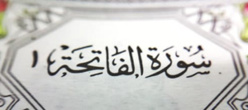 سُورَةُ الفَاتِحَةِ ١